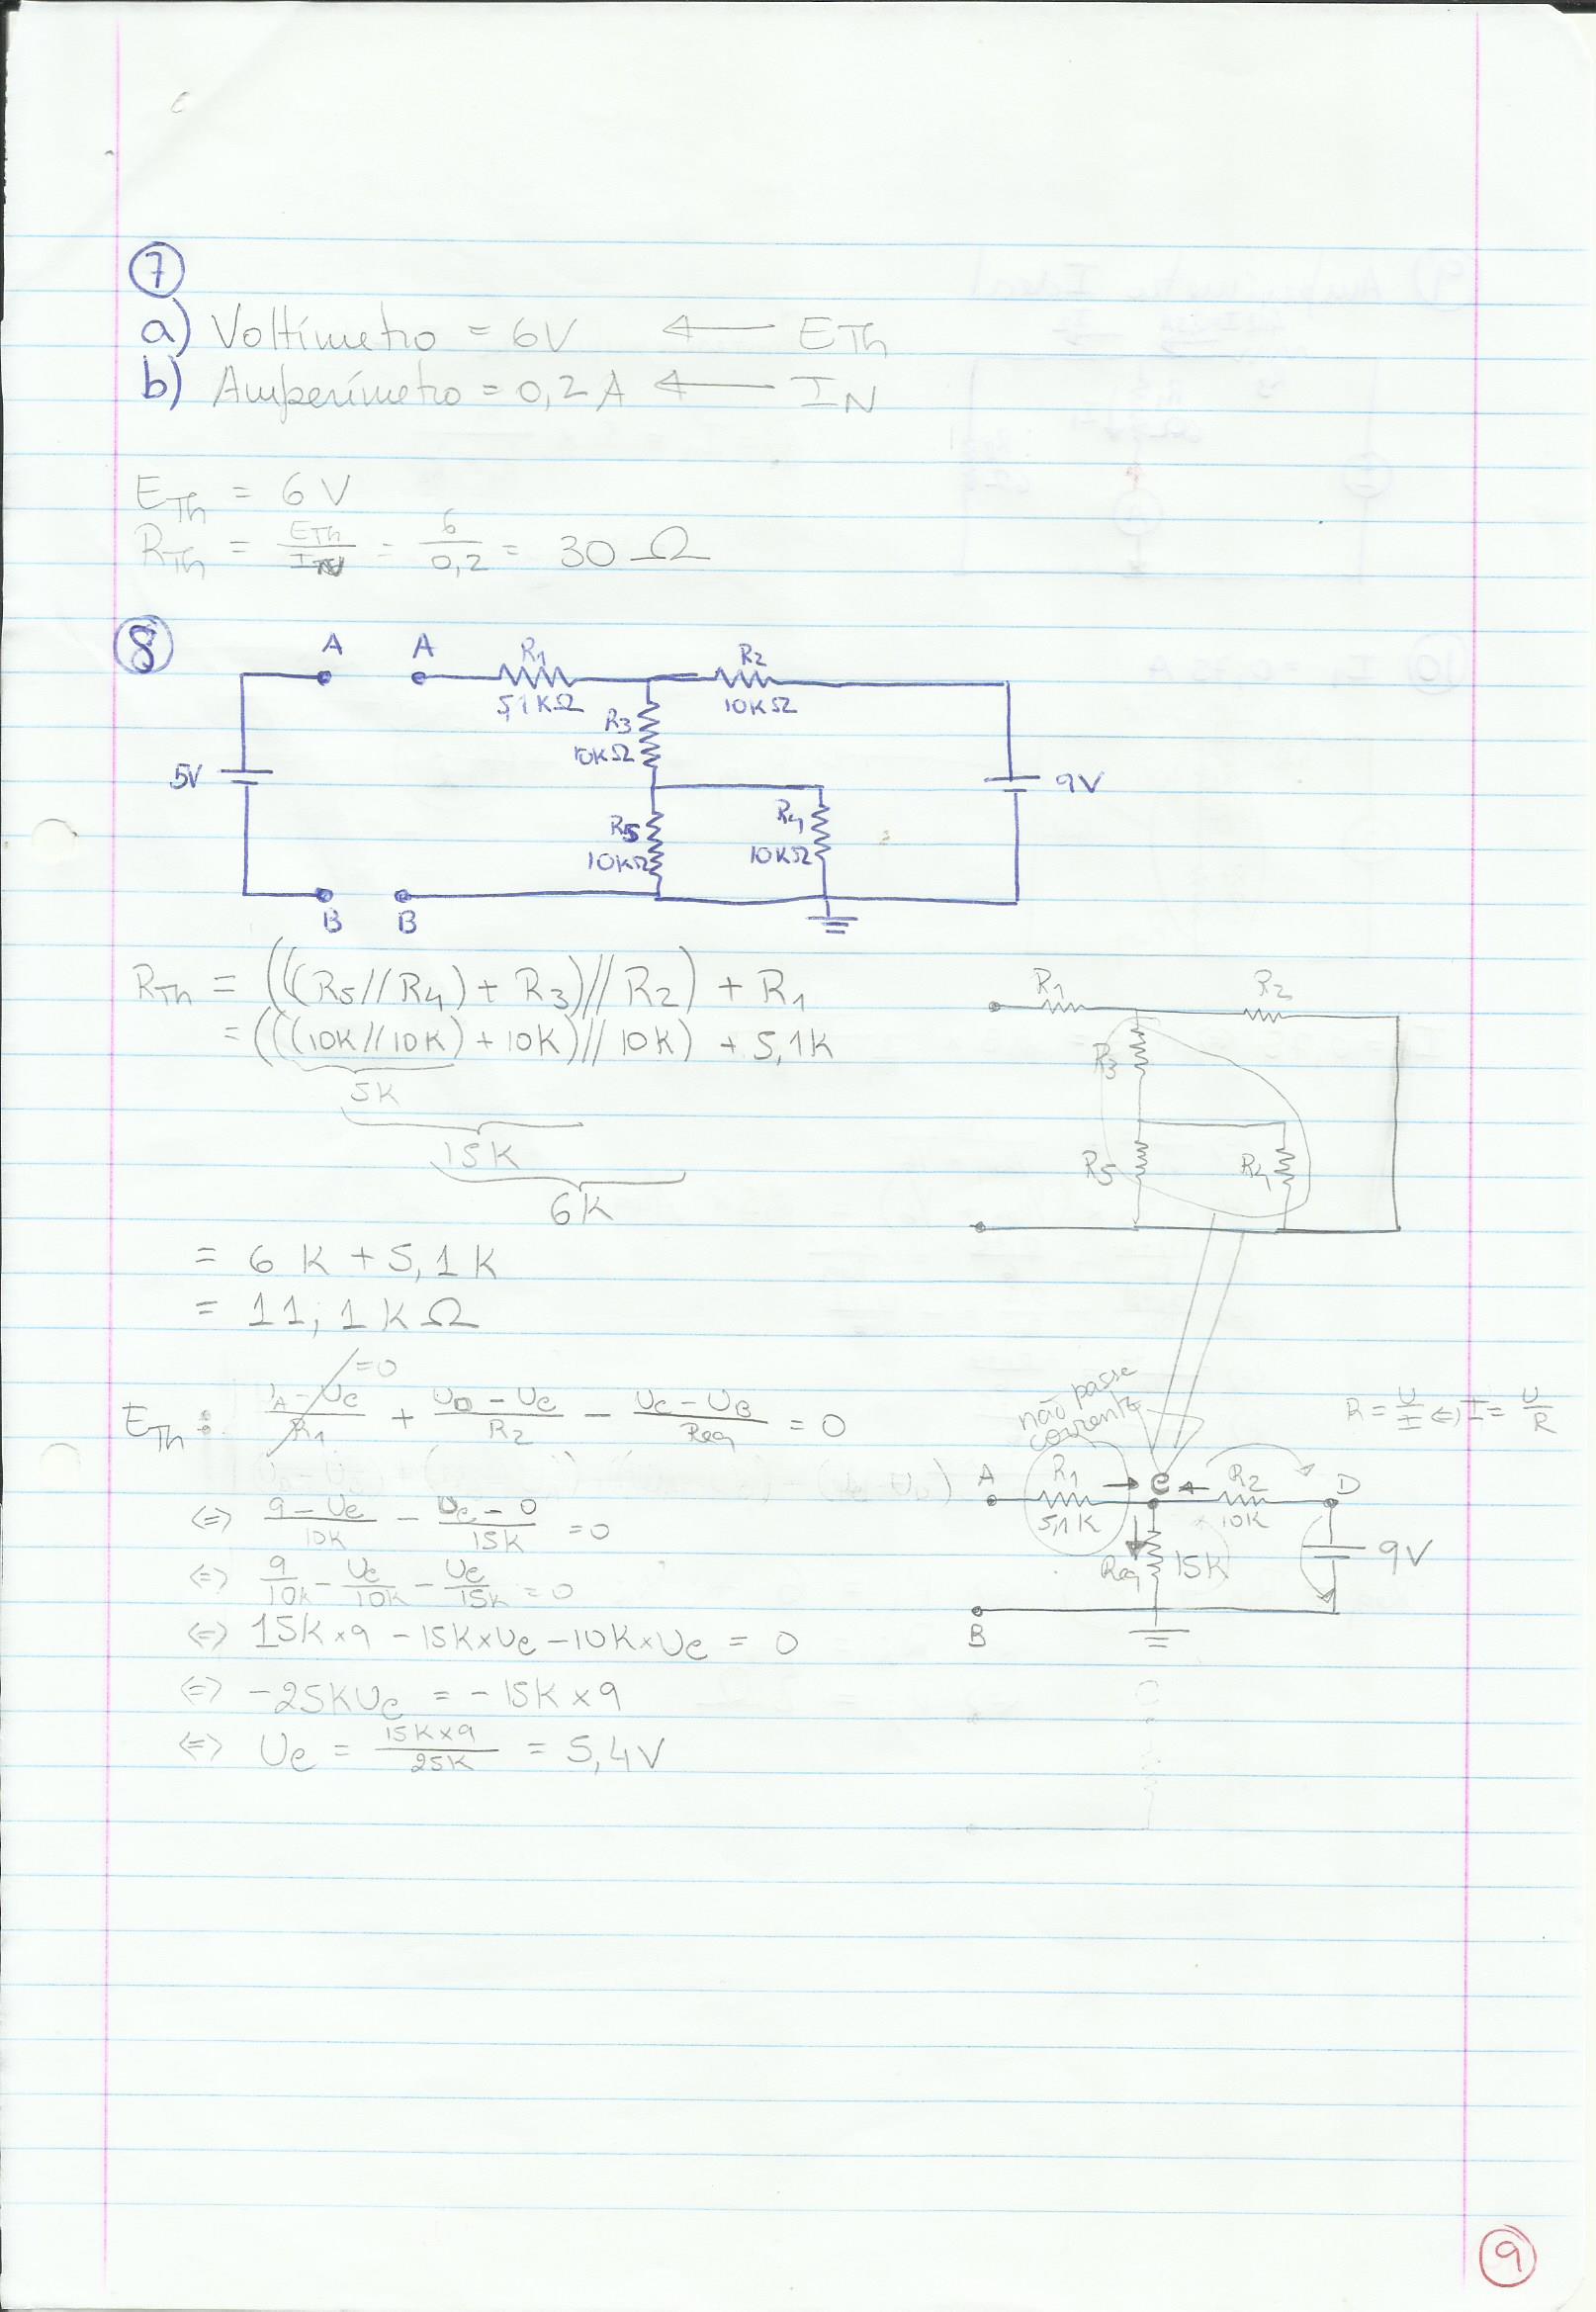 7
a) Voltímetro = 6V ← ETh
b) Amperímetro = 0,2 A ← IN
ETh = 6 V
RTh = ETh/IN = 6/0,2 = 30 Ω
8
A A R1 R2
5,1KΩ 10KΩ
R3
10KΩ
5V 9V
R5 R4
10KΩ 10KΩ
B B
RTh = (((R5//R4) + R3)//R2) + R1
= (((10K//10K) + 10K)//10K) + 5,1K
5K
15K
6K
R1 R2
R3
R5 R4
= 6 K + 5,1 K
= 11,1 KΩ
=0
ETh: UA - UC/R1 + UD - UC/R2 - UC - UB/Req = 0
⇔ 9 - UC/10K - UC - 0/15K = 0
⇔ 9/10K - UC/10K - UC/15K = 0
⇔ 15K×9 - 15K×UC - 10K×UC = 0
⇔ -25KUC = -15K×9
⇔ UC = 15K×9/25K = 5,4V
não passe
corrente
R = U/I ⇔ I = U/R
A R1 C R2 D
5,1K 10K
Req 15K 9V
B
9